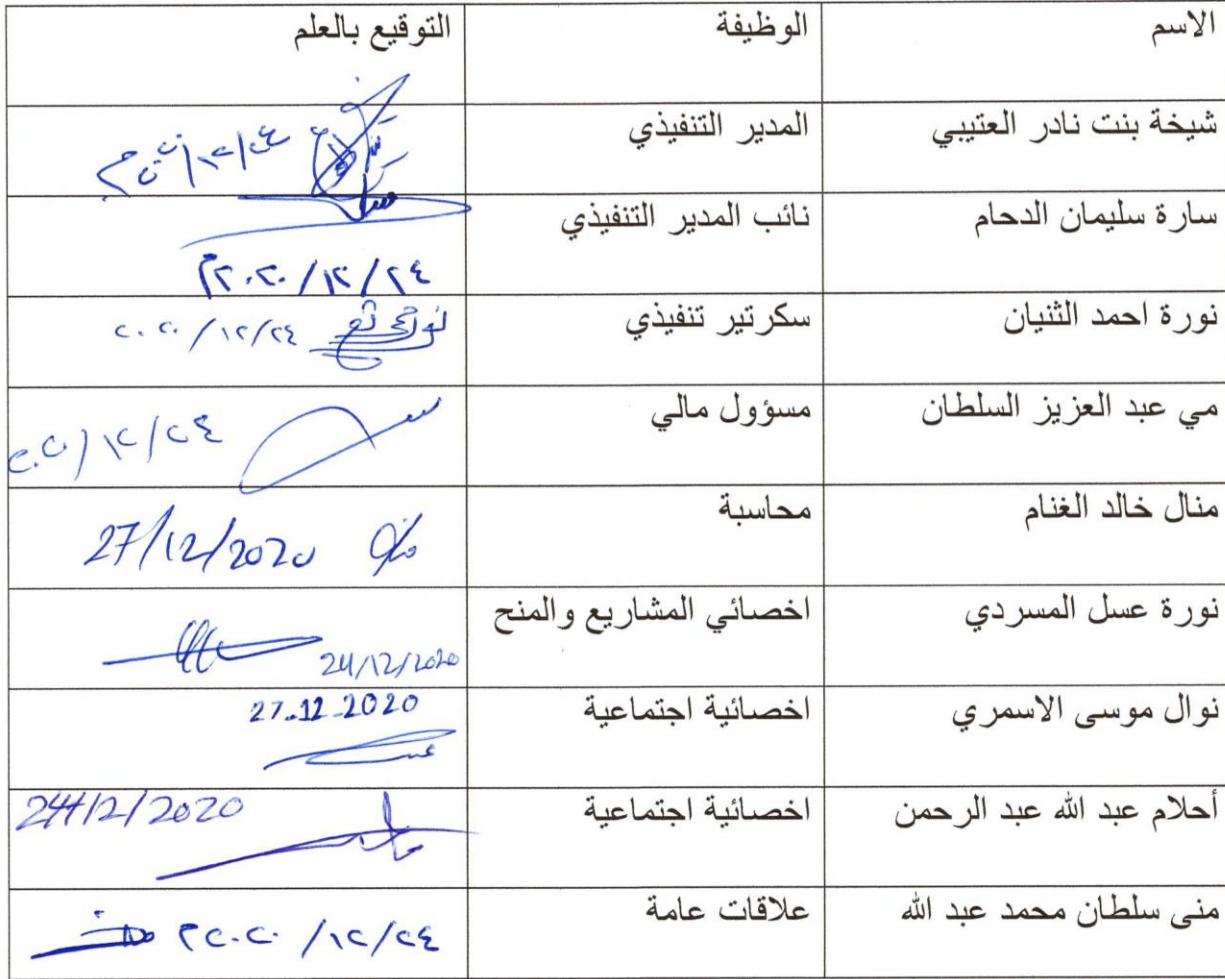 الاسم الوظيفة التوقيع بالعلم
شيخة بنت نادر العتيبي المدير التنفيذي ٢٤/١٢/٢٠٢٠م
سارة سليمان الدحام نائب المدير التنفيذي
٢٤/١٢/٢٠٢٠م
نورة احمد الثنيان سكرتير تنفيذي ٢٤/١٢/٢٠٢٠
مي عبد العزيز السلطان مسؤول مالي ٢٤/١٢/٢٠٢٠
منال خالد الغنام محاسبة 27/12/2020
نورة عسل المسردي اخصائي المشاريع والمنح
24/12/2020
نوال موسى الاسمري اخصائية اجتماعية 27.12.2020
أحلام عبد الله عبد الرحمن اخصائية اجتماعية 24/12/2020
منى سلطان محمد عبد الله علاقات عامة ٢٤/١٢/٢٠٢٠م